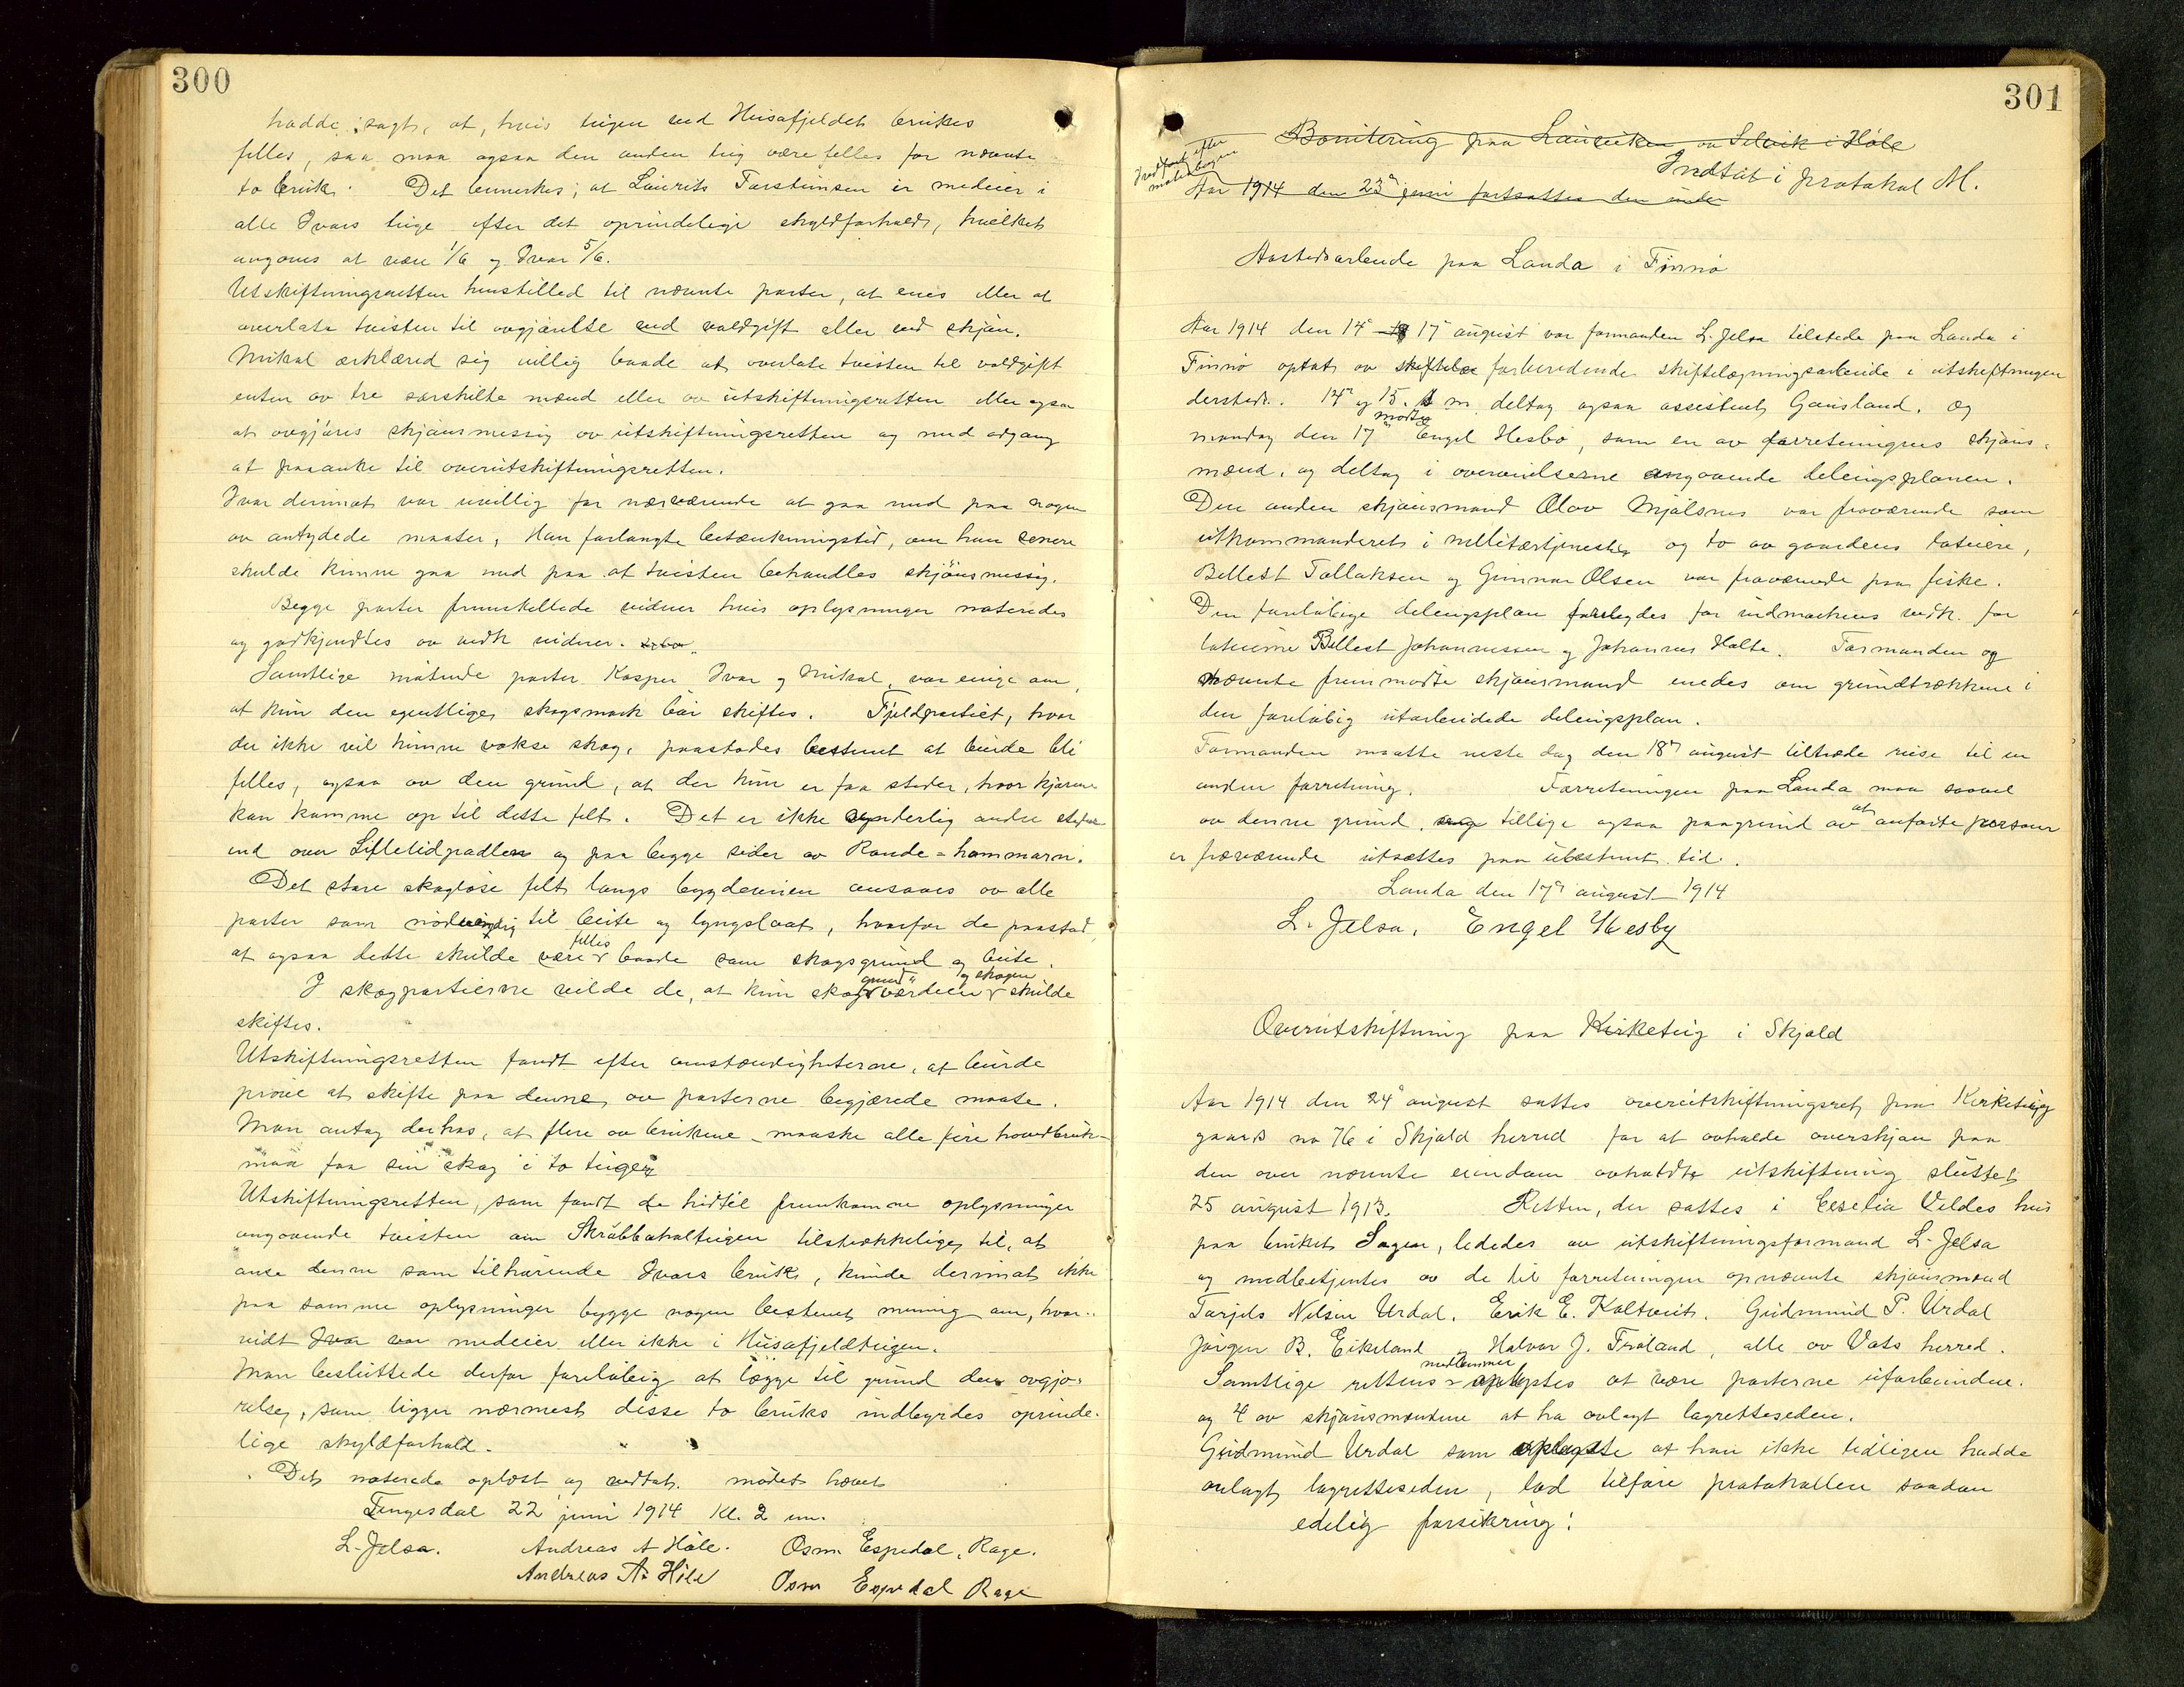 300
hadde sagt, at, hvis teigen ved Husafjeldet brukes
felles, saa maa ogsaa den anden teig være felles for nævnte
to bruk. Det bemerkes, at Laurits Torsteinsen er medeier i
alle Ivars teige efter det oprindelige skyldforhold, hvilket
angaves at være 1/6 og Ivar 5/6.
Utskiftningsretten henstilled til nævnte parter, at enes eller at
overlate tvisten til avgjørelse ved voldgift eller ved skjøn.
Mikal erklæred sig villig baade at overlate tvisten til voldgift
enten av tre særskilte mænd eller av utskiftningsretten eller ogsaa
at avgjøres skjønsmessig av utskiftningsretten og med adgang
at paaanke til overutskiftningsretten.
Ivar derimot var uvillig for nærværende at gaa med paa nogen
av antydede maater. Han forlangte betænkningstid, om han senere
skulde kunne gaa med paa at tvisten behandles skjønsmessig.
Begge parter fremstillede vidner hvis oplysninger noteredes
og godkjendtes av vedk vidner.
Samtlige møtende parter Kasper Ivar og Mikal, var enige om,
at kun den egentlige skogsmark bør skiftes. Fjeldpartiet, hvor
der ikke vil kunne vokse skog, paastodes bestemt at burde bli
felles, ogsaa av den grund, at der kun er faa steder, hvor kjørene
kan komme op til dette felt. Det er ikke synderlig andre steder
end over Lifletidpadlen og paa begge sider av Rande-hammarn.
Det store skogløse felt langs bygdeveien ansaaes av alle
parter som nødvendig til beite og lyngslaat, hvorfor de paastod,
at ogsaa dette skulde være felles baade som skogsgrund og beite.
I skogpartierne vilde de, at kun skoggrundværdien og skogen skulde
skiftes.
Utskiftningsretten fandt efter omstændigheterne, at burde
prøve at skifte paa denne, av parterne begjærede maate.
Man antog derhos, at flere av brukene – maaske alle fire hovedbruk –
maa faa sin skog i to teiger
Utskiftningsretten, som fandt de hidtil fremkomne oplysninger
angaaende tvisten om Skrubbaholteigen tilstrækkelige til, at
anse denne som tilhørende Ivars bruk, kunde derimot ikke
paa samme oplysninger bygge nogen bestemt mening om, hvor-
vidt Ivar var medeier eller ikke i Husafjeldteigen.
Man besluttede derfor foreløbig at lægge til grund den avgjø-
relse, som ligger nærmest disse to bruks indbyrdes oprinde-
lige skyldforhold.
Det noterede oplæst og vedtat. møtet hævet
Tengesdal 22 juni 1914 Kl. 2 em.
L. Jelsa. Andreas A Hole. Osm. Espedal, Rage.
Andreas A. Hole Osm Espedal Rage
301
Bonitering paa Lauviken av Selvik i Høle
Indtat i protokol M.
Indført efter
Aar 1914 den 23de juni fortsattes den under
Aastedsarbeide paa Landa i Finnø
Aar 1914 den 14de 17de august var formanden L. Jelsa tilstede paa Landa i
Finnø optat av forberedende skiftelægningsarbeide i utskiftningen
dersteds. 14de og 15. s m. deltog ogsaa assistent Gausland, og
mandag den 17de møtte Engel Hesbø, som en av forretningens skjøns-
mænd, og deltog i overveielserne angaaende delingsplanen.
Den anden skjønsmand Olav Mjølsnes var fraværende som
utkommanderet i militærtjeneste og to av gaardens lotseiere,
Bellest Tollaksen og Gunnar Olsen var fraværende paa fiske.
Den foreløbige delingsplan forelagdes for indmarkens vedk. for
lotseierne Bellest Johannessen og Johannes Holte. Formanden og
nævnte fremmøtte skjønsmand enedes om grundtrækkene i
den foreløbig utarbeidede delingsplan.
Formanden maatte neste dag den 18de august tiltræde reise til en
anden forretning. Forretningen paa Landa maa saavel
av denne grund, tillige ogsaa paagrund av at anførte personer
er fraværende utsættes paa ubestemt tid.
Landa den 17de august 1914
L. Jelsa. Engel Hesby
Overutskiftning paa Kirketeig i Skjold
Aar 1914 den 24de august sattes overutskiftningsret paa Kirketeig
gaards no 76 i Skjold herred for at avholde overskjøn paa
den over nævnte eiendom avholdte utskiftning sluttet
25 august 1913. Retten, der sattes i Ceselia Veldes hus
paa bruket Sagen, lededes av utskiftningsformand L. Jelsa
og medbetjentes av de til forretningen opnævnte skjønsmænd
Torjels Nilsen Urdal, Erik E. Kaltveit, Gudmund P. Urdal
Jørgen B. Eikeland og Halvor J. Frøland, alle av Vats herred.
Samtlige rettens medlemmer oplystes at være parterne uforbundne.
og 4 av skjønsmændene at ha avlagt lagretteseden.
Gudmund Urdal som oplyste at han ikke tidligere hadde
avlagt lagretteseden, lod tilføre protokollen saadan
edelig forsikring: